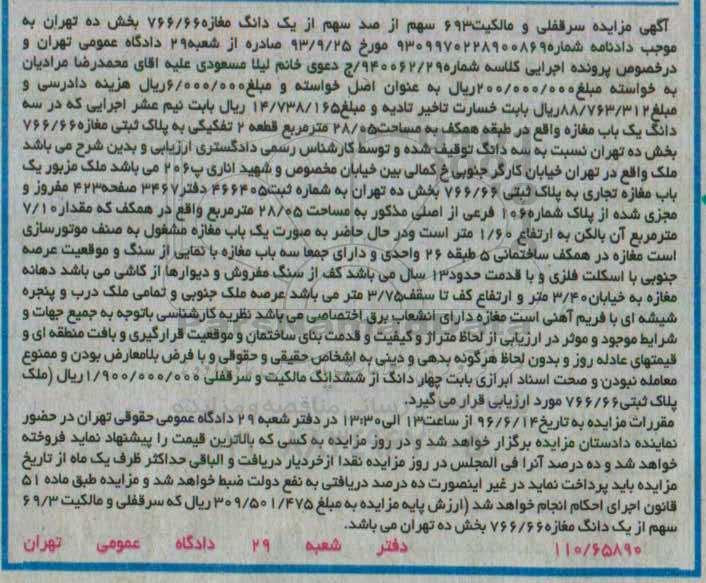 آگهی مزایده سرقفلی و مالکیت۶۹۳ سهم از صد سهم از یک دانگ مغازه۷۶۶/۶۶ بخش ده تهران به
موجب دادنامه شماره۹۳۰۹۹۷۰۲۲۸۹۰۰۸۶۹ مورخ ۹۳/۹/۲۵ صادره از شعبه۲۹ دادگاه عمومی تهران و
درخصوص پرونده اجرایی کلاسه شماره۹۴۰۰۶۲/۲۹/ج دعوی خانم لیلا مسعودی علیه اقای محمدرضا مرادیان
به خواسته مبلغ۲۰۰/۰۰۰/۰۰۰ریال به عنوان اصل خواسته و مبلغ۶/۰۰۰/۰۰۰ریال هزینه دادرسی و
مبلغ۸۸/۷۶۳/۳۱۲ریال بابت خسارت تاخیر تادیه و مبلغ۱۴/۷۳۸/۱۶۵ ریال بابت نیم عشر اجرایی که در سه
دانگ یک باب مغازه واقع در طبقه همکف به مساحت۲۸/۰۵ مترمربع قطعه ۲ تفکیکی به پلاک ثبتی مغازه۷۶۶/۶۶
بخش ده تهران نسبت به سه دانگ توقیف شده و توسط کارشناس رسمی دادگستری ارزیابی و بدین شرح می باشد
ملک واقع در تهران خیابان کارگر جنوبی خ کمالی بین خیابان مخصوص و شهید اناری پ۲۰۶ می باشد ملک مزبور یک
باب مغازه تجاری به پلاک ثبتی ۷۶۶/۶۶ بخش ده تهران به شماره ثبت۴۶۶۴۰۵ دفتر۳۴۶۷ صفحه۴۲۳ مفروز و
مجزی شده از پلاک شماره۱۰۶ فرعی از اصلی مذکور به مساحت ۲۸/۰۵ مترمربع واقع در همکف که مقدار۷/۱۰
مترمربع آن بالکن به ارتفاع ۱/۶۰ متر است ودر حال حاضر به صورت یک باب مغازه مشغول به صنف موتورسازی
است مغازه در همکف ساختمانی ۵ طبقه ۲۶ واحدی و دارای جمعا سه باب مغازه با نمایی از سنگ و موقعیت عرصه
جنوبی با اسکلت فلزی و با قدمت حدود۱۳ سال می باشد کف از سنگ مفروش و دیوارها از کاشی می باشد دهانه
مغازه به خیابان۳/۴۰ متر و ارتفاع کف تا سقف۳/۷۵ متر می باشد عرصه ملک جنوبی و تمامی ملک درب و پنجره
شیشه ای با فریم آهنی است مغازه دارای انشعاب برق اختصاصی می باشد نظریه کارشناسی باتوجه به جمیع جهات و
شرایط موجود و موثر در ارزیابی از لحاظ متراژ و کیفیت و قدمت بنای ساختمان و موقعیت قرارگیری و بافت منطقه ای و
قیمتهای عادله روز و بدون لحاظ هرگونه بدهی و دینی به اشخاص حقیقی و حقوقی و با فرض بلامعارض بودن و ممنوع
معامله نبودن و صحت اسناد ابرازی بابت چهار دانگ از ششدانگ مالکیت و سرقفلی ۱/۹۰۰/۰۰۰/۰۰۰ریال (ملک
پلاک ثبتی۷۶۶/۶۶ مورد ارزیابی قرار می گیرد.
مقررات مزایده به تاریخ۹۶/۶/۱۴ از ساعت۱۳ الی۱۳:۳۰ در دفتر شعبه ۲۹ دادگاه عمومی حقوقی تهران در حضور
نماینده دادستان مزایده برگزار خواهد شد و در روز مزایده به کسی که بالاترین قیمت را پیشنهاد نماید فروخته
خواهد شد و ده درصد آنرا فی المجلس در روز مزایده نقدا ازخریدار دریافت و الباقی حداکثر ظرف یک ماه از تاریخ
مزایده باید پرداخت نماید در غیر اینصورت ده درصد دریافتی به نفع دولت ضبط خواهد شد و مزایده طبق ماده ۵۱
قانون اجرای احکام انجام خواهد شد (ارزش پایه مزایده به مبلغ ۳۰۹/۵۰۱/۴۷۵ ریال که سرقفلی و مالکیت ۶۹/۳
سهم از یک دانگ مغازه۷۶۶/۶۶ بخش ده تهران می باشد.
۱۱۰/۶۵۸۹۰ دفتر شعبه ۲۹ دادگاه عمومی تهران